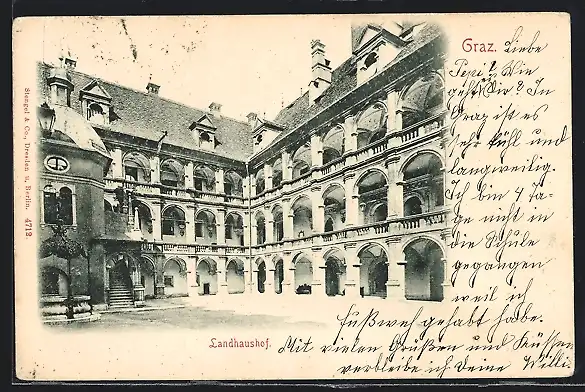 Graz.
Liebe
Pepi! Wie
geht's Dir? In
Graz ist es
sehr kühl und
langweilig.
Ich bin 4 Ta-
ge nicht in
die Schule
gegangen
weil ich
Fußweh gehabt habe.
Mit vielen Grüßen und Küssen
verbleibe ich Deine Willi
Stengel & Co., Dresden u. Berlin. 4712
Landhaushof.